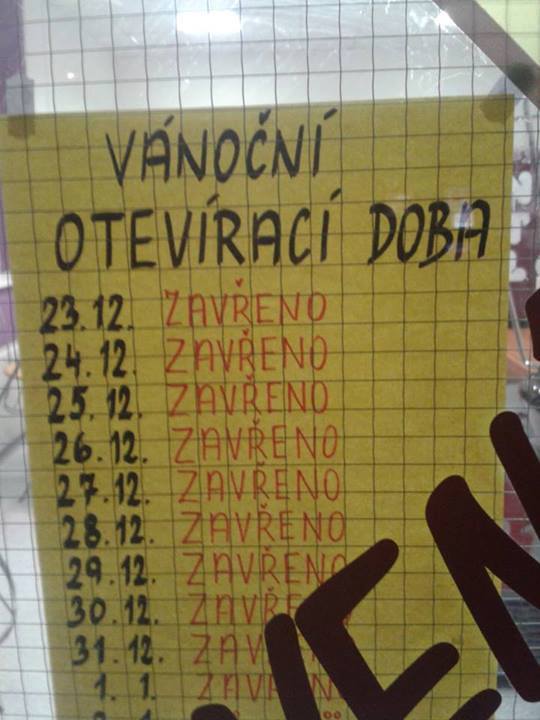 VÁNOČNÍ
OTEVÍRACÍ DOBA
23.12. ZAVŘENO
24.12. ZAVŘENO
25.12. ZAVŘENO
26.12. ZAVŘENO
27.12. ZAVŘENO
28.12. ZAVŘENO
29.12. ZAVŘENO
30.12. ZAVŘENO
31.12.
1.1.